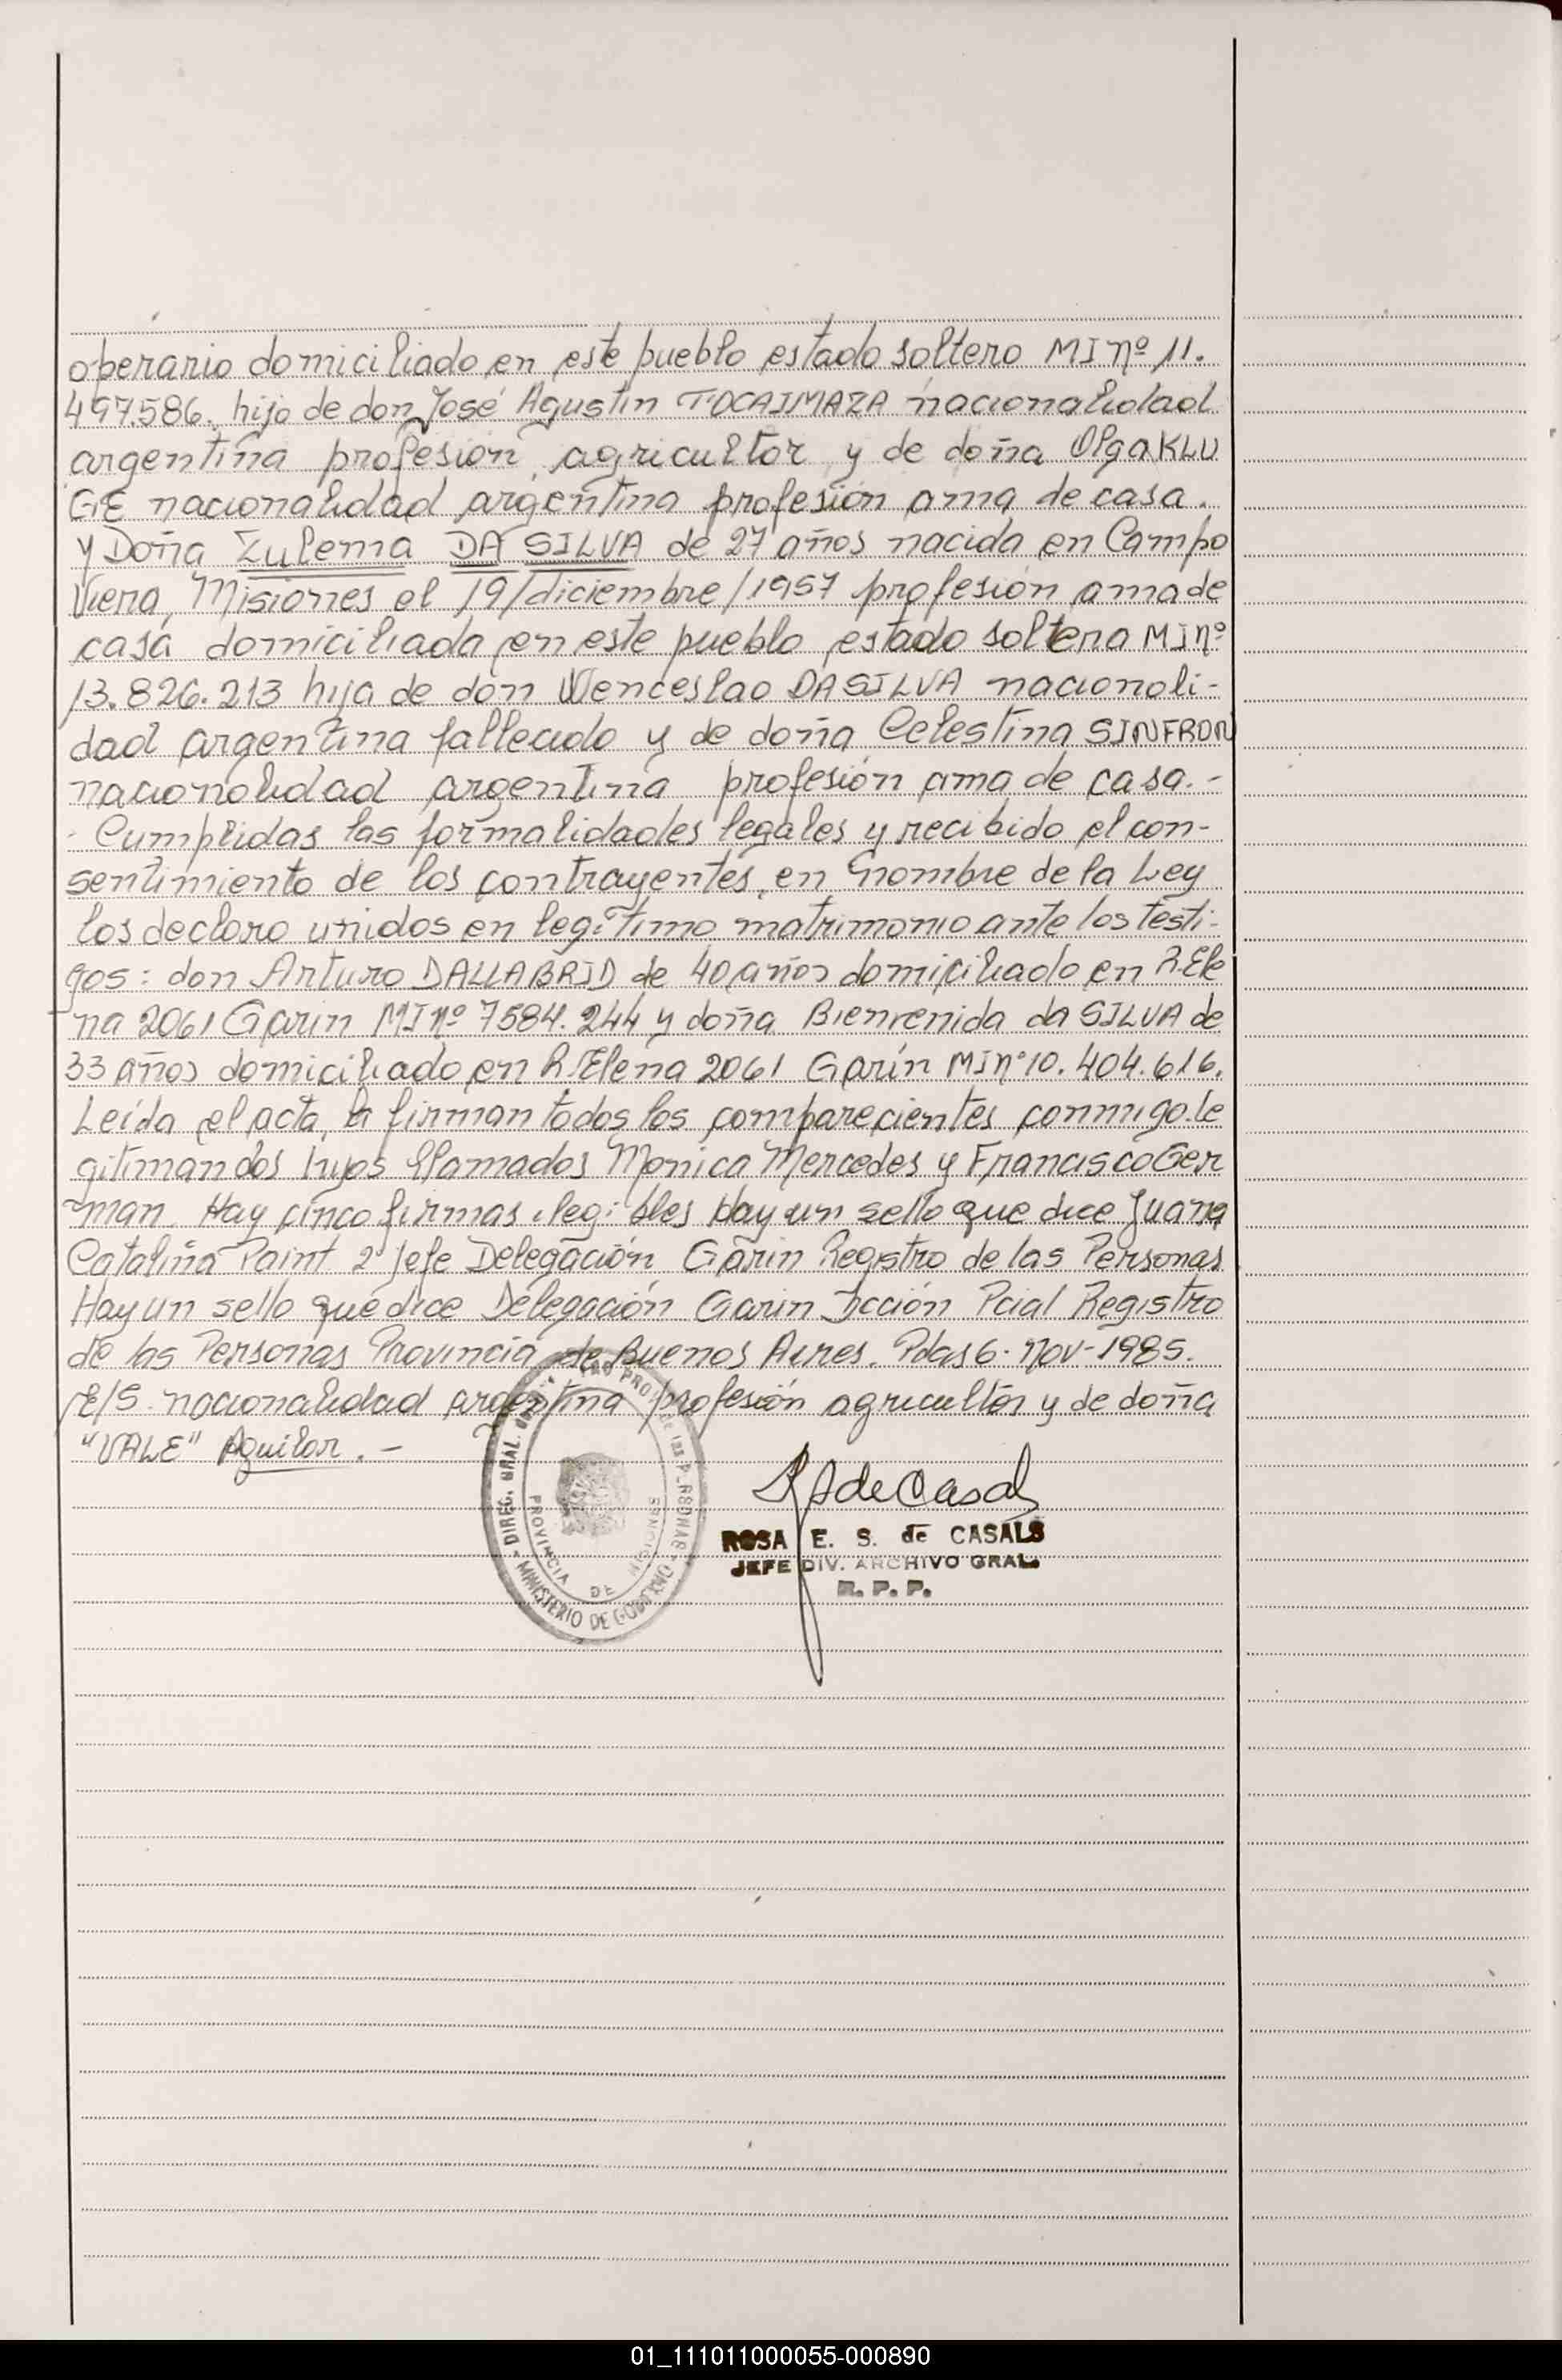 operario domiciliado en este pueblo estado soltero MI nº 11.
497.586. hijo de don José Agustin TOCAIMAZA nacionalidad
argentina profesión agricultor y de doña Olga KLU
GE nacionalidad argentina profesión ama de casa.
y Doña Zulema DA SILVA de 27 años nacida en Campo
Viera, Misiones el 19/diciembre/1957 profesión ama de
casa domiciliada en este pueblo estado soltera MI nº
13.826.213 hija de don Wenceslao DA SILVA nacionali-
dad argentina fallecido y de doña Celestina SINFRON
nacionalidad argentina profesión ama de casa.-
- Cumplidas las formalidades legales y recibido el con-
sentimiento de los contrayentes, en nombre de la Ley
los declaro unidos en legítimo matrimonio ante los testi-
gos: don Arturo DALLABRID de 40 años domiciliado en R.Ele
na 2061 Garin MI nº 7584.244 y doña Bienvenida da SILVA de
33 años domiciliado en R.Elena 2061 Garín MI nº 10.404.616.
Leída el acta, la firman todos los comparecientes conmigo.le
gitiman dos hijos llamados Monica Mercedes y Francisco Ger
man. Hay cinco firmas ilegibles Hay un sello que dice Juana
Catalina Paint 2º Jefe Delegación Garin Registro de las Personas
Hay un sello que dice Delegación Garin Dcción Pcial Registro
de las Personas Provincia de Buenos Aires. Pdas 6-Nov-1985.
E/S. nacionalidad argentina profesión agricultor y de doña
"VALE" Aguilar. -
DIREC. GRAL. PROV. DE LAS PERSONAS
PROVINCIA DE MISIONES
MINISTERIO DE GOBIERNO
RAdeCasals
ROSA E. S. de CASALS
JEFE DIV. ARCHIVO GRAL.
R. P. P.
01_111011000055-000890